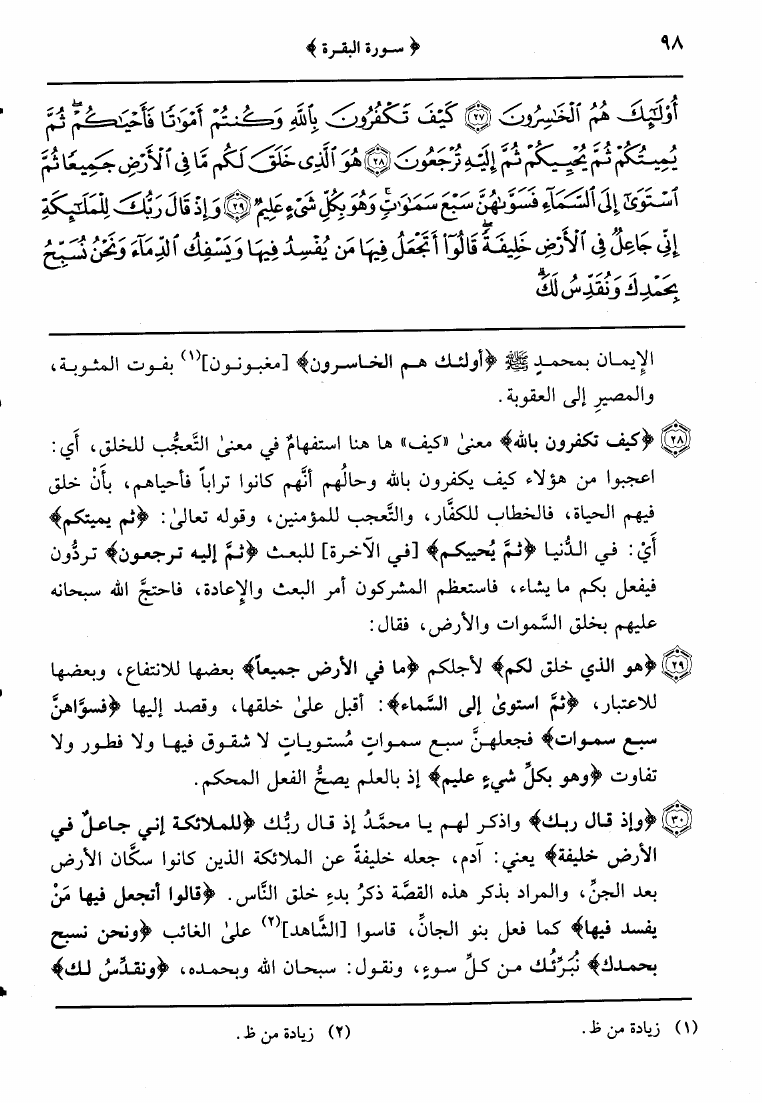 ٩٨ ﴿ سورة البقرة ﴾
أُوْلَٰٓئِكَ هُمُ ٱلْخَٰسِرُونَ ٢٧ كَيْفَ تَكْفُرُونَ بِٱللَّهِ وَكُنتُمْ أَمْوَٰتًا فَأَحْيَٰكُمْ ۖ ثُمَّ
يُمِيتُكُمْ ثُمَّ يُحْيِيكُمْ ثُمَّ إِلَيْهِ تُرْجَعُونَ ٢٨ هُوَ ٱلَّذِى خَلَقَ لَكُم مَّا فِى ٱلْأَرْضِ جَمِيعًا ثُمَّ
ٱسْتَوَىٰٓ إِلَى ٱلسَّمَآءِ فَسَوَّىٰهُنَّ سَبْعَ سَمَٰوَٰتٍ ۚ وَهُوَ بِكُلِّ شَىْءٍ عَلِيمٌ ٢٩ وَإِذْ قَالَ رَبُّكَ لِلْمَلَٰٓئِكَةِ
إِنِّى جَاعِلٌ فِى ٱلْأَرْضِ خَلِيفَةً ۖ قَالُوٓا۟ أَتَجْعَلُ فِيهَا مَن يُفْسِدُ فِيهَا وَيَسْفِكُ ٱلدِّمَآءَ وَنَحْنُ نُسَبِّحُ
بِحَمْدِكَ وَنُقَدِّسُ لَكَ ۖ
الإِيمـان بمحمـدٍ ﷺ ﴿أولئـك هـم الخـاسـرون﴾ [مغبـونـون](١) بفـوت المثـوبـة،
والمصيرِ إلى العقوبة.
٢٨ ﴿كيف تكفرون بالله﴾ معنىٰ «كيف» ها هنا استفهامٌ في معنىٰ التَّعجُّب للخلق، أي:
اعجبوا من هؤلاء كيف يكفرون بالله وحالُهم أنَّهم كانوا تراباً فأحياهم، بأنْ خلق
فيهم الحياة، فالخطاب للكفَّار، والتَّعجب للمؤمنين، وقوله تعالىٰ: ﴿ثم يميتكم﴾
أَيْ: في الدُّنيا ﴿ثمَّ يُحييكم﴾ [في الآخرة] للبعث ﴿ثمَّ إليه ترجعون﴾ تردُّون
فيفعل بكم ما يشاء، فاستعظم المشركون أمر البعث والإِعادة، فاحتجَّ الله سبحانه
عليهم بخلق السَّموات والأرض، فقال:
٢٩ ﴿هو الذي خلق لكم﴾ لأجلكم ﴿ما في الأرض جميعاً﴾ بعضها للانتفاع، وبعضها
للاعتبار، ﴿ثمَّ استوىٰ إلى السَّماء﴾: أقبل علىٰ خلقها، وقصد إليها ﴿فسوَّاهنَّ
سبع سموات﴾ فجعلهنَّ سبع سمواتٍ مُستوياتٍ لا شقوق فيها ولا فطور ولا
تفاوت ﴿وهو بكلِّ شيءٍ عليم﴾ إذ بالعلم يصحُّ الفعل المحكم.
٣٠ ﴿وإذ قال ربك﴾ واذكر لهم يا محمَّدُ إذ قال ربُّك ﴿للملائكة إني جاعلٌ في
الأرض خليفة﴾ يعني: آدم، جعله خليفةً عن الملائكة الذين كانوا سكَّان الأرض
بعد الجنِّ، والمراد بذكر هذه القصَّة ذكرُ بدءِ خلق النَّاس. ﴿قالوا أتجعل فيها مَنْ
يفسد فيها﴾ كما فعل بنو الجانِّ، قاسوا [الشَّاهد](٢) علىٰ الغائب ﴿ونحن نسبح
بحمدك﴾ نُبَرِّئُك من كلِّ سوءٍ، ونقول: سبحان الله وبحمده، ﴿ونقدِّسُ لك﴾
(١) زيادة من ظ. (٢) زيادة من ظ.